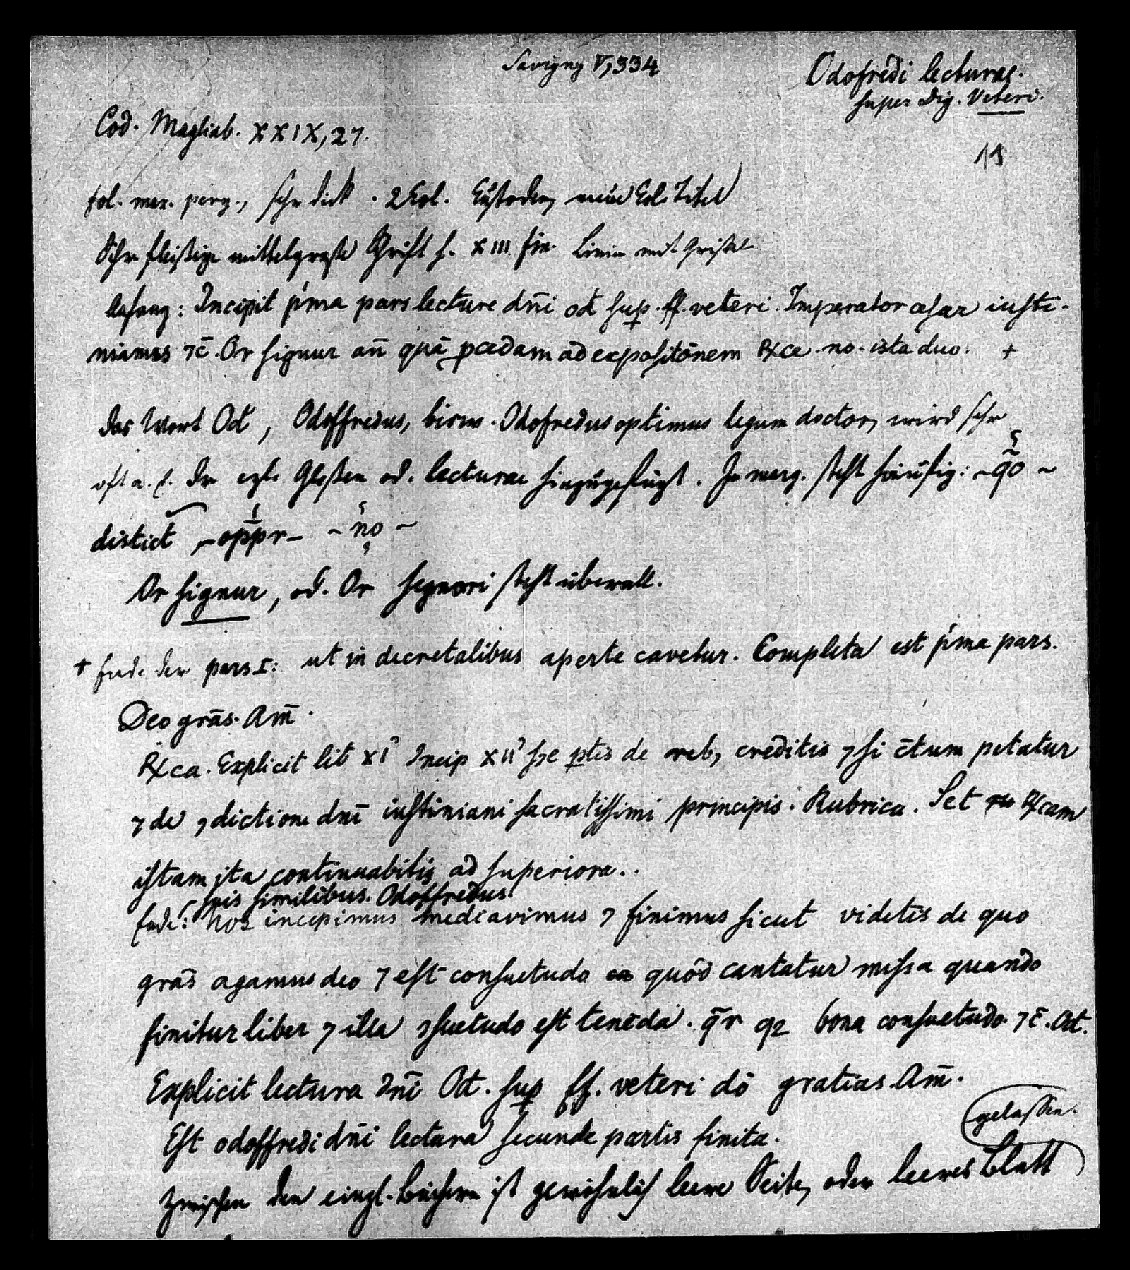 Savigny V, 334
Odofredi lecturae
super Dig. Veteri.
Cod. Magliab. XXIX, 27.
18
fol. max. perg., sehr dick. 2 Col. Custoden, neue Col. Titel
Sehr fleißige mittelgroße Schrift s. XIII fin. Linien mit Griffel
Anfang: Incipit p'ma pars lecture dn̄i od sup. ff. veteri. Imperator cesar iusti-
nianus ⁊c̄. Or signur an̄ quā p̱cedam ad expositōnem ℞ce no. ista duo. +
das Wort Od, Odoffredus, bisw. Odofredus optimus legum doctor, wird sehr
oft a. E. der egl. Glossen od. lecturae hinzugefügt. In marg. steht häufig: – qo –
distict – oppr – – no –
Or signur, od. Or segnori steht überall.
+ Ende der pars I: ut in decretalibus aperte cavetur. Completa est p'ma pars.
Deo grās. Am̄.
℞ca. Explicit lib XI Incip XII hec ptis de reb, creditis ⁊ si c̄tum petatur
⁊ de ꝯdictione dn̄i iustiniani sacratissimi principis. Rubrica. Set ℞cam
istam ita continuabitis ad superiora..
suis similibus. Odoffredus.
Ende: nos incepimus mediavimus ⁊ finimus sicut videtis de quo
gras agamus deo ⁊ est consuetudo quōd cantatur missa quando
finitur liber ⁊ illa ꝯsuetudo est tenēda. q̄r q2 bona consuetudo ⁊c̄. Od.
Explicit lectura dn̄i Od. sup ff. veteri dō gratias Am̄.
Est odoffredi dn̄i lectura secunde partis finita.
gelassen.
Zwischen den einzl. Büchern ist gewöhnlich leere Seite, oder leeres Blatt